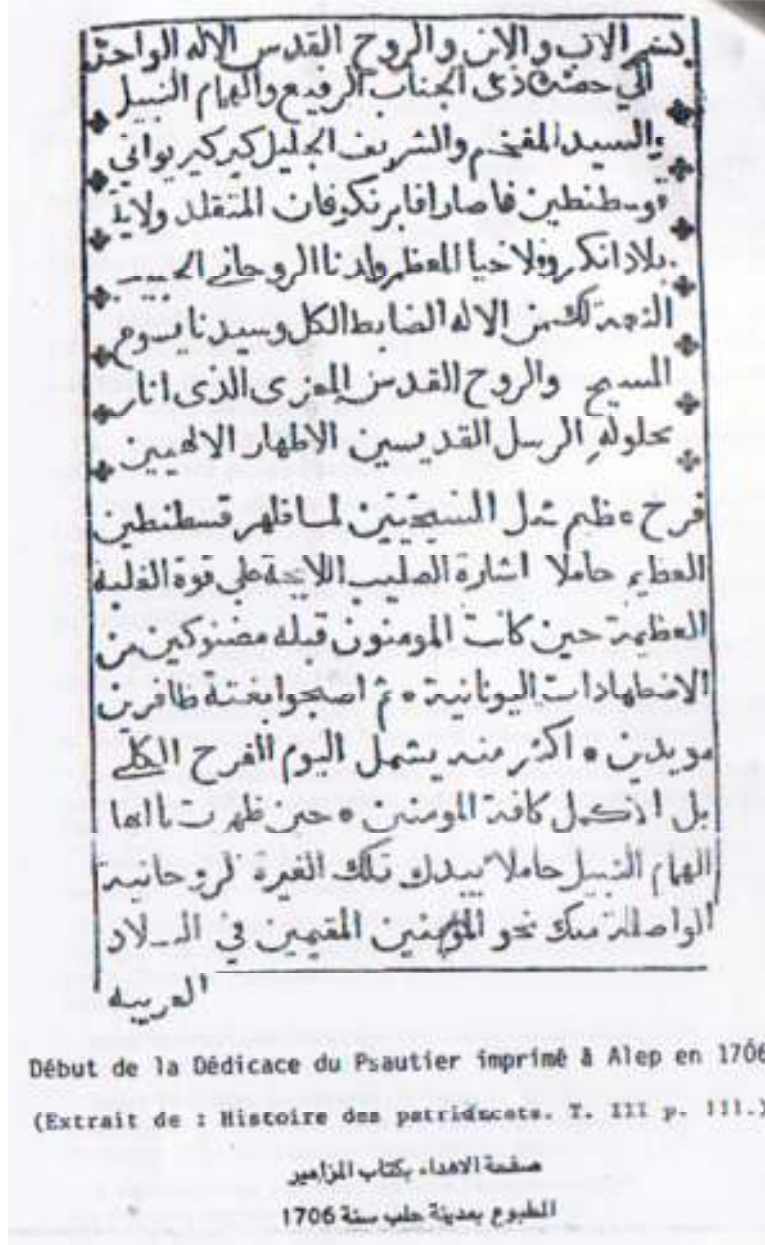 بسم الاب والابن والروح القدس الاله الواحد
الي حضرت ذى الجناب الرفيع والهمام النبيل
السيد المفخم والشريف الجليل كير كير يواني
قوسطنطين فاصارافا برنكوفان المتقلد ولاية
بلاد انكروفلاخيا المعظم ولدنا الروحاني الحبيب
النعمة لك من الاله الضابط الكل وسيدنا يسوع
المسيح والروح القدس المعزى الذى انار
بحلوله الرسل القديسين الاطهار الالهيين
فرح عظيم شمل المسيحيين لما ظهر قسطنطين
العظيم حاملا اشارة الصليب اللايحة على قوة الغلبة
العظيمة حين كانت المومنون قبله مضنوكين من
الاضطهادات اليونانية ٥ ثم اصبحوا بغتة ظافرين
مويدين ٥ اكثر منه يشمل اليوم الفرح الكلي
بل الاكمل كافة المومنين ٥ حين ظهرت ياايها
الهمام النبيل حاملا بيدك تلك الغيرة الروحانية
الواصلة منك نحو المؤمنين المقيمين في البلاد
العربيه
Début de la Dédicace du Psautier imprimé à Alep en 1706
(Extrait de : Histoire des patriarcats. T. III p. 111.)
صفحة الاهداء بكتاب المزامير
المطبوع بمدينة حلب سنة 1706